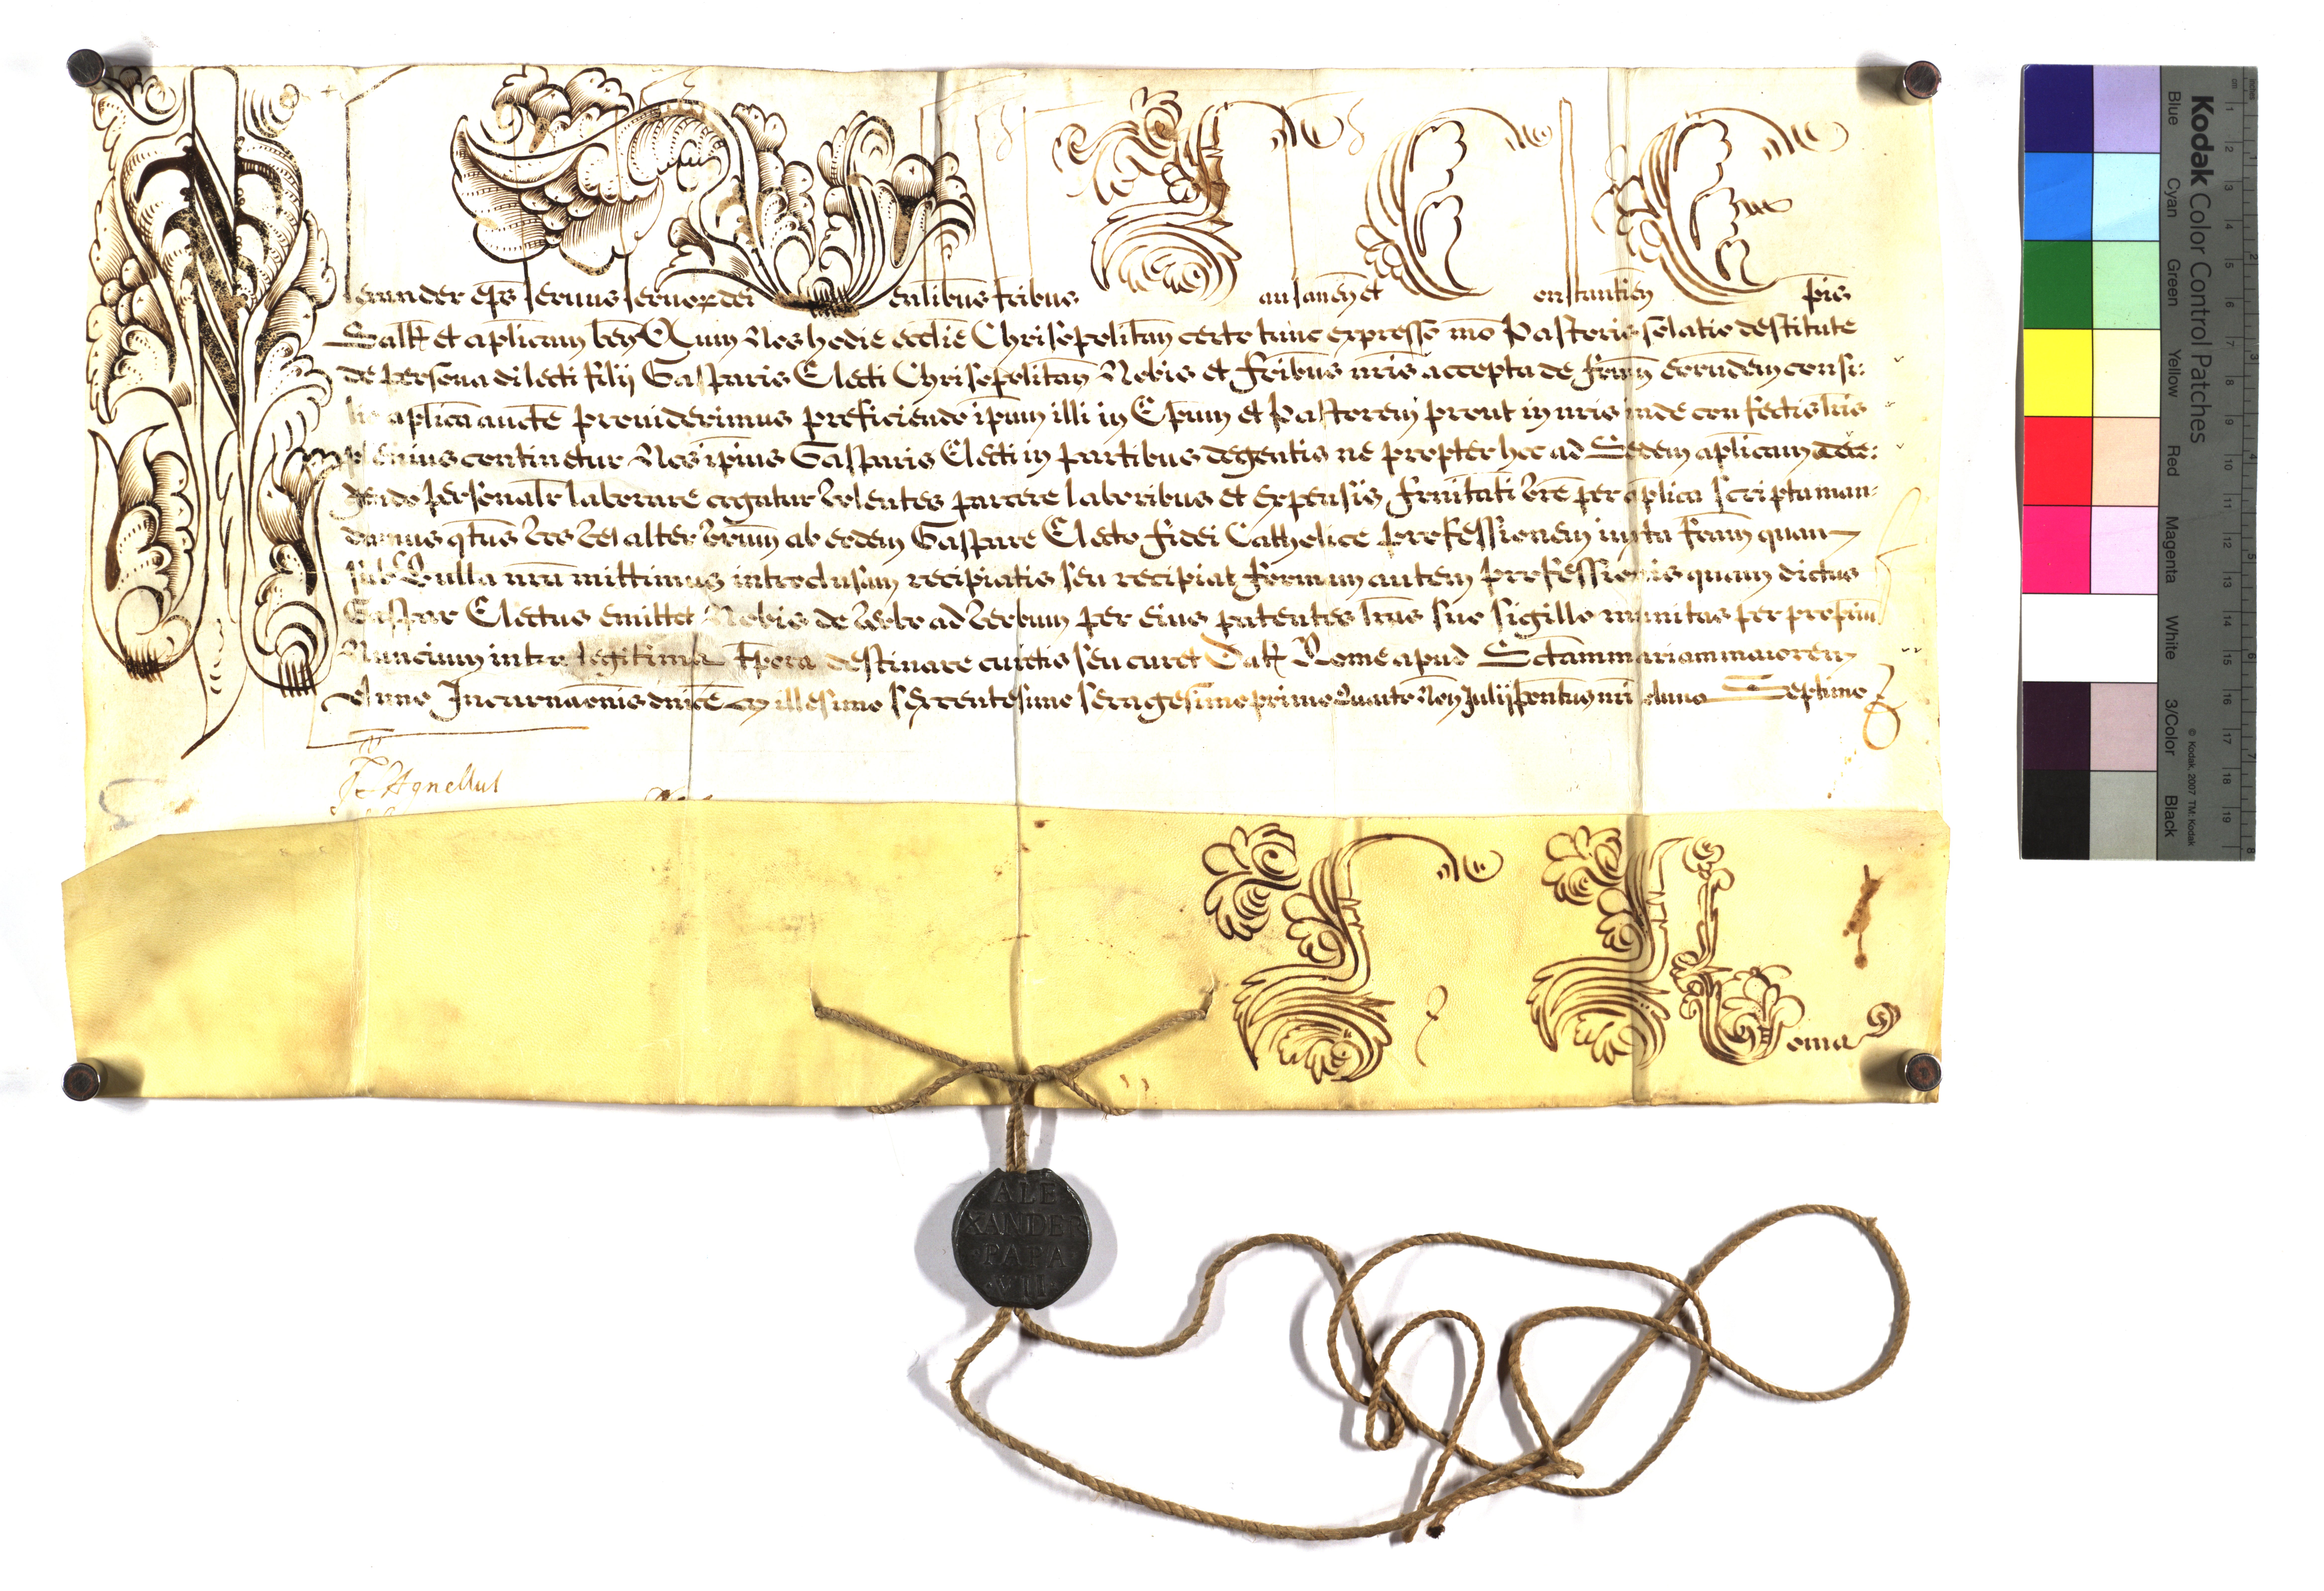 Alexander eps servus servor dei Venlibus fribus Lausanen et Constantien Epis
Saltm et aplicam ben Cum Nos hodie ecclie Chrisopolitan certo tunc expresso mo Pastoris solatio destitute
de persona dilecti filij Gasparis Electi Chrisopolitan Nobis et fribus nris accepta de frum eorundem consi:
lio aplica aucte providerimus preficiendo ipsum illi in Epum et Pastorem prout in nris inde confectis lris
plenius continetur Nos ipsius Gasparis Electi in partibus degentis ne propter hoc ad Sedem aplicam acce:
dendo personalr laborare cogatur volentes parcere laboribus et expensis frnitati vre per aplica scripta man:
damus qtus vos vel alter vrum ab eodem Gaspare Electo fidei Catholice professionem iuxta fram quam
sub Bulla nra mittimus introclusam recipiatis seu recipiat formam autem professionis quam dictus
Gaspar Electus emittet Nobis de verbo ad verbum per eius patentes lras suo sigillo munitas per proprium
Nuncium intra legitima tpora destinare curetis seu curet Dat Rome apud Sctam mariam maiorem
Anno Incarnaonis dnice Millesimo sexcentesimo sexagesimo primo Quarto Non Julij pontus nri Anno Septimo
Agnellus
ALE
XANDER
PAPA
VII
Kodak Color Control Patches
Blue Cyan Green Yellow Red Magenta White 3/Color Black
© Kodak, 2007 TM: Kodak
inches
cm
1 2 3 4 5 6 7 8 9 10 11 12 13 14 15 16 17 18 19
1 2 3 4 5 6 7 8